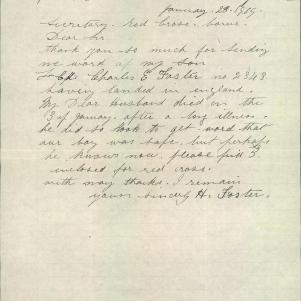 January 29. 1919.
Secretary. Red Cross. Berne.
Dear Sir
thank you so much for sending
me word of my son
Charles E Foster no 2343
having landed in england.
My Dear Husband died on the
3 of January. after a long illness.
he did so look to get word that
our boy was safe. but perhaps
he knows now. please find
inclosed for red cross.
with many thanks. I remain
yours sincerly H. Foster.